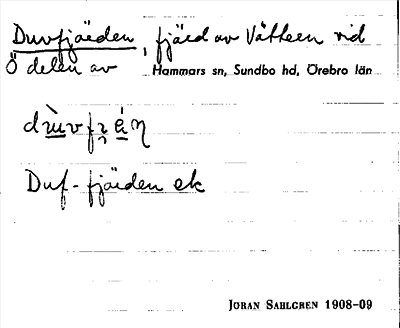 Duvfjärden, fjärd av Vättern vid
Ö delen av Hammars sn, Sundbo hd, Örebro län
Duf-fjärden ek
JÖRAN SAHLGREN 1908-09